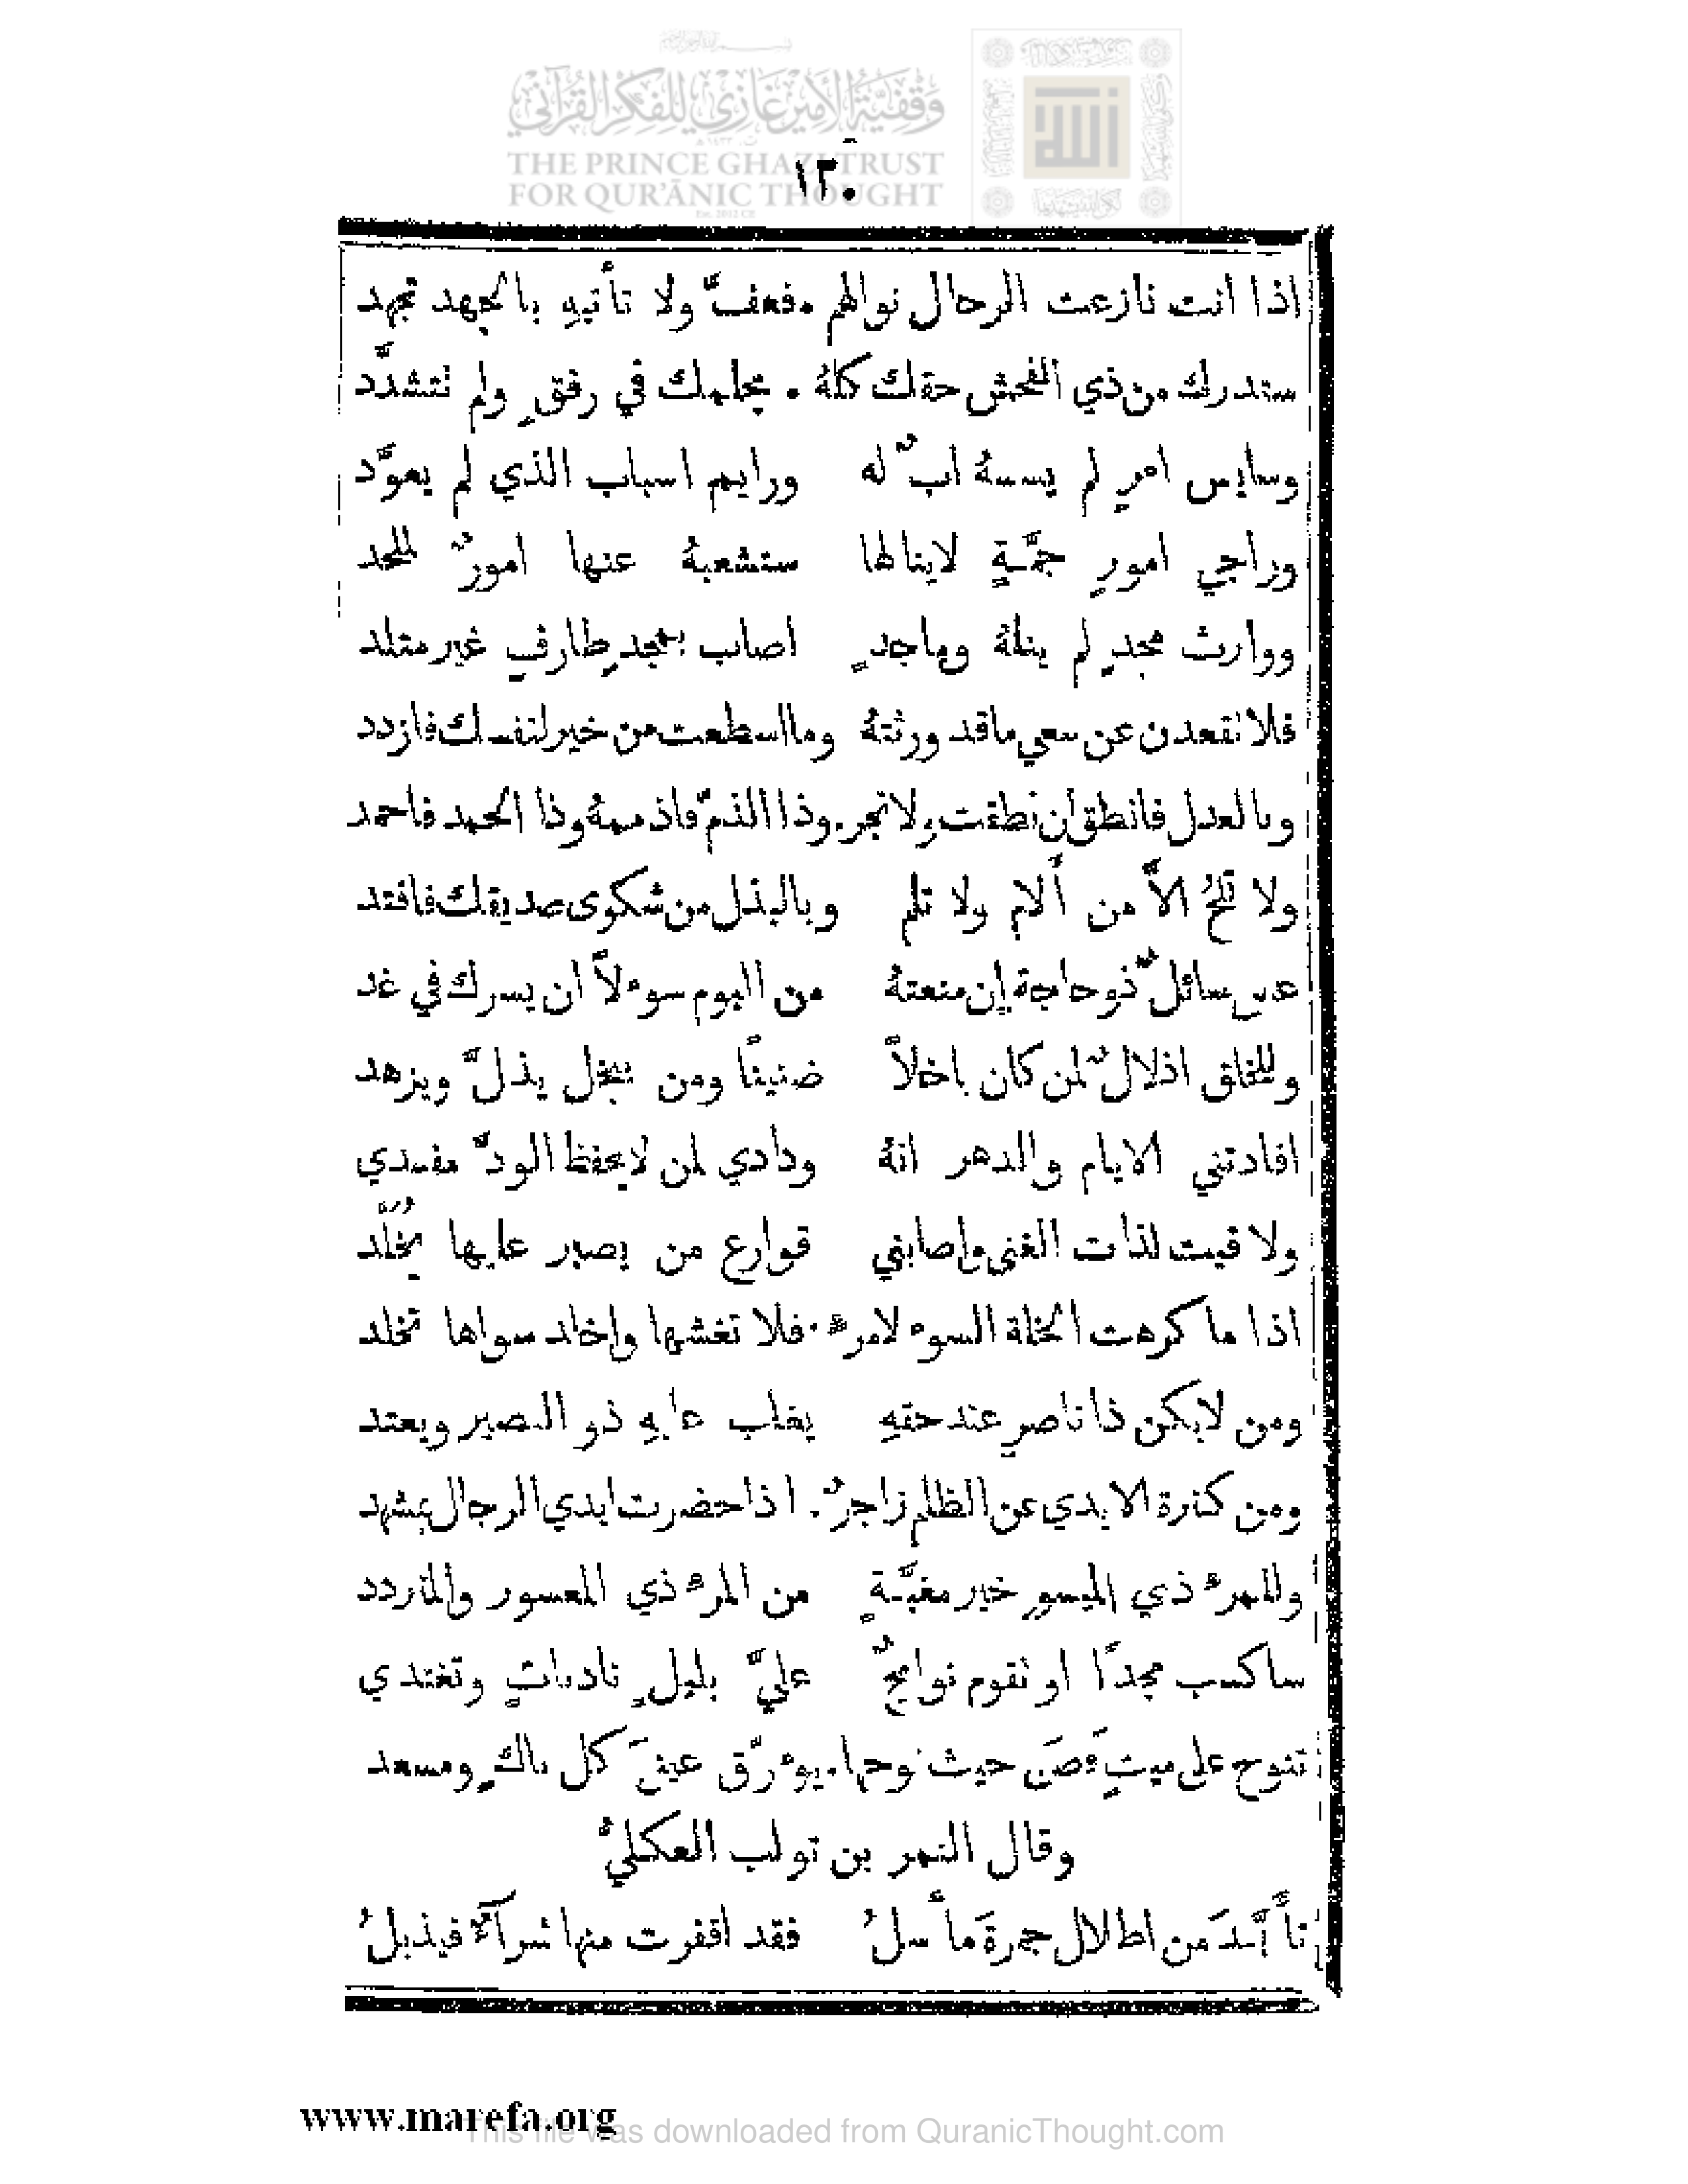 وقفية الأمير غازي للفكر القرآني
THE PRINCE GHAZI TRUST
FOR QUR'ĀNIC THOUGHT
Est. 2012 CE
١٣٠
اذا انت نازعت الرجال نوالهم فعفّ ولا تأتيهِ بالجهد تجهد
ستدرك من ذي الفحش حقك كلهُ بحلمك في رفقٍ ولم تتشدَّد
وسايس امرٍ لم يسسهُ ابٌ له ورايم اسباب الذي لم يعوَّد
وراجي امورٍ جمَّةٍ لاينالها ستشعبهُ عنها امورٌ لملحد
ووارث مجدٍ لم ينلهُ وماجدٍ اصاب بمجدٍ طارفٍ غير متلد
فلا تقعدن عن سعي ماقد ورثتهُ وما اسطعت من خير لنفسك فازدد
وبالعدل فانطق ان نطقت ولا تجر وذا الذمّ فاذممهُ وذا الحمد فاحمد
ولا تلحُ الاَّ من أَلام ولا تلم وبالبذل من شكوى صديقك فافتد
عسى سائلٌ ذو حاجة إن منعتهُ من اليوم سوءلاً ان يسرك في غد
وللخلق اذلالٌ لمن كان باخلاً ضنينًا ومن يبخل يذلَّ ويزهد
افادتني الايام والدهر انهُ ودادي لمن لايحفظ الودّ مفسدي
ولاقيت لذات الغنى واصابني قوارع من يصبر عليها يُخلَّد
اذا ما كرهت الخلة السوء لامرءٍ فلا تغشها واخلد سواها تخلد
ومن لايكن ذا ناصرٍ عند حقهِ يغلب عليهِ ذو النصير ويعتد
ومن كثرة الايدي عن الظلم زاجرٌ اذا حضرت ايدي الرجال بمشهد
وللمرء ذي الميسور خير مغبَّةٍ من المرء ذي المعسور والمتردد
ساكسب مجدًا او تقوم نوايحٌ عليَّ بليلٍ نادباتٍ وتغتدي
تنوح على ميتٍ حيث نوحها يوءرّق عينَ كل باكٍ ومسعد
وقال النمر بن تولب العكليُّ
تأَبَّدَ من اطلال جمرةَ مأسلُ فقد اقفرت منها شرآءٌ فيذبلُ
www.marefa.org
This file was downloaded from QuranicThought.com